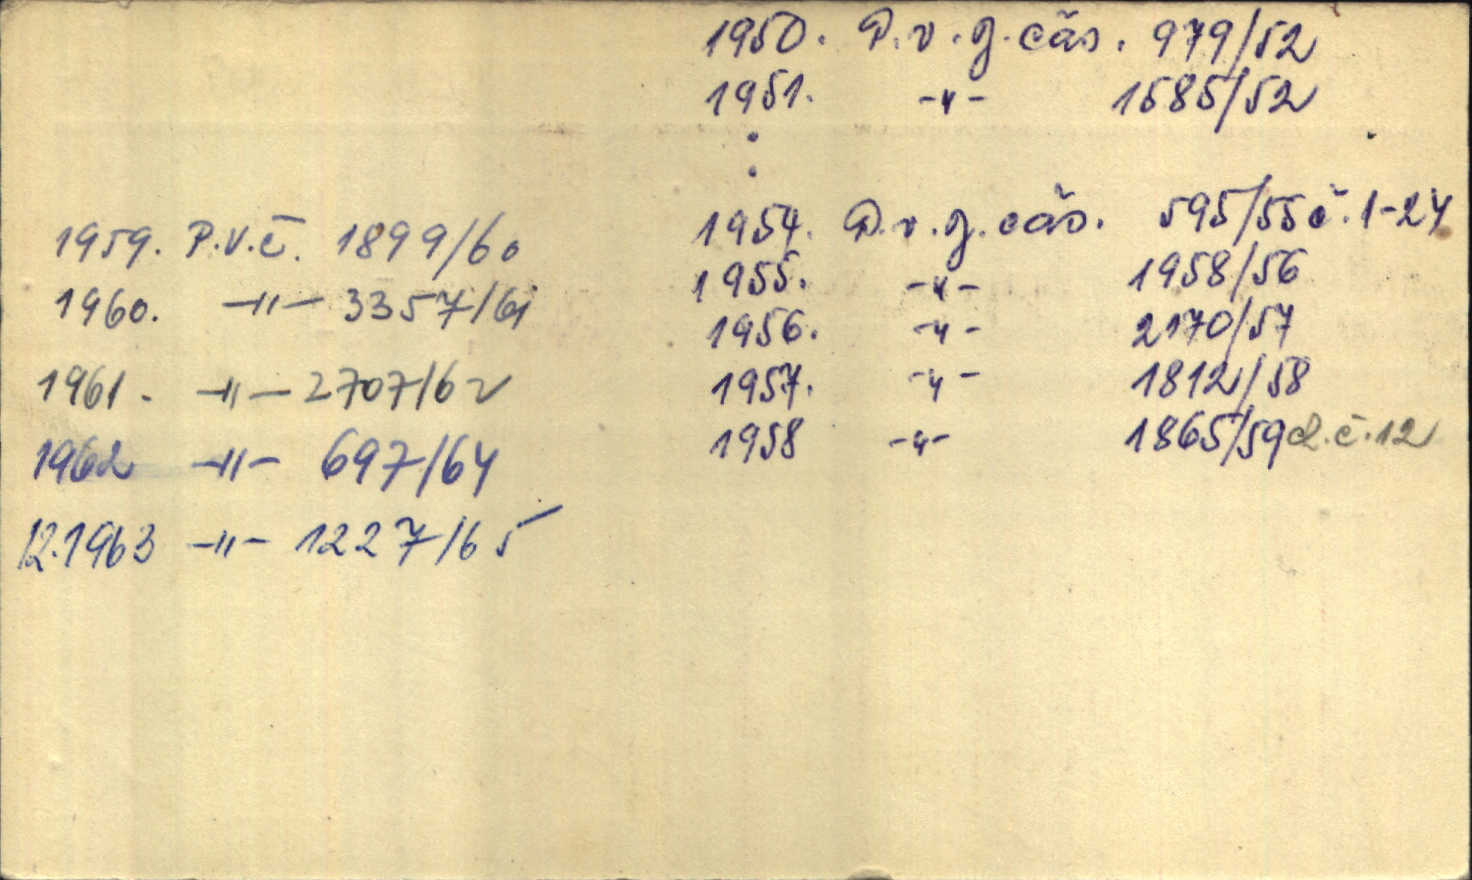 1950. P.v.j.čás. 979/52
1951. -"- 1585/52
:
1954. P.v.j.čás. 595/55 č.1-24
1955. -"- 1958/56
1956. -"- 2170/57
1957. -"- 1812/58
1958 -"- 1865/59 d.č.12
1959. P.V.č. 1899/60
1960. -"- 3357/61
1961. -"- 2707/62
1962 -"- 697/64
12.1963 -"- 1227/65